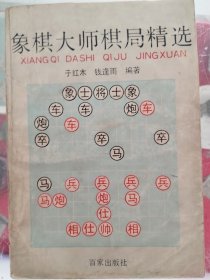 象棋大师棋局精选
XIANGQI DASHI QIJU JINGXUAN
于红木 钱逢雨 编著
象 士 将 士 象
车 车 炮 车
炮 车
卒 卒 卒
马
马 兵 兵 兵
马 炮 炮 马
仕
相 仕 帅 相
百家出版社